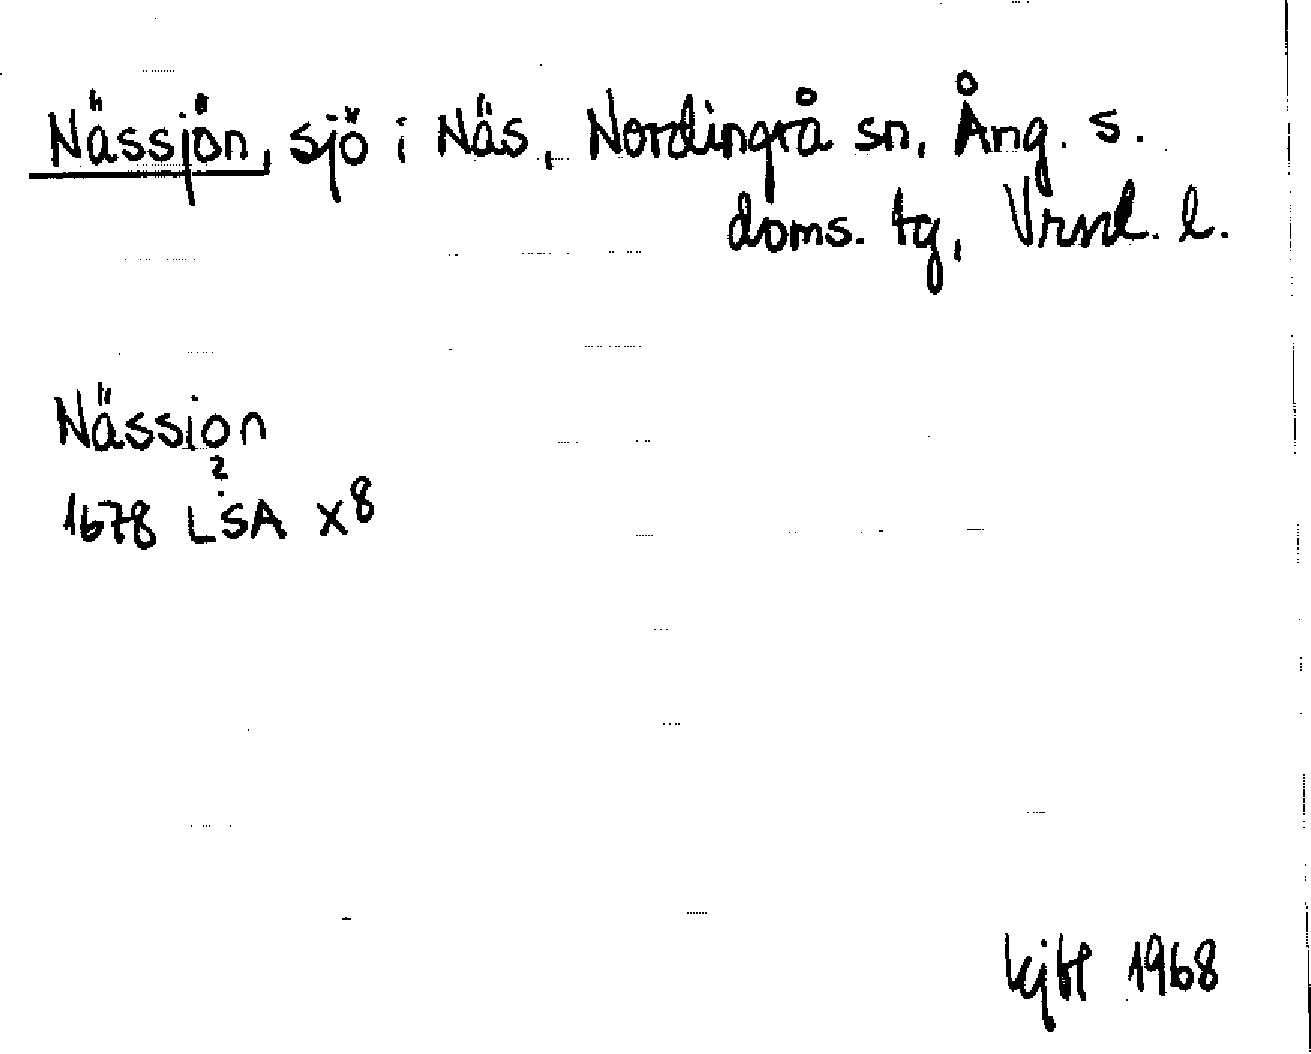 Nässjön, sjö i Näs, Nordingrå sn, Ång. s.
doms. tg, Vrnl. l.
Nässion
?
1678 LSA X8
1968